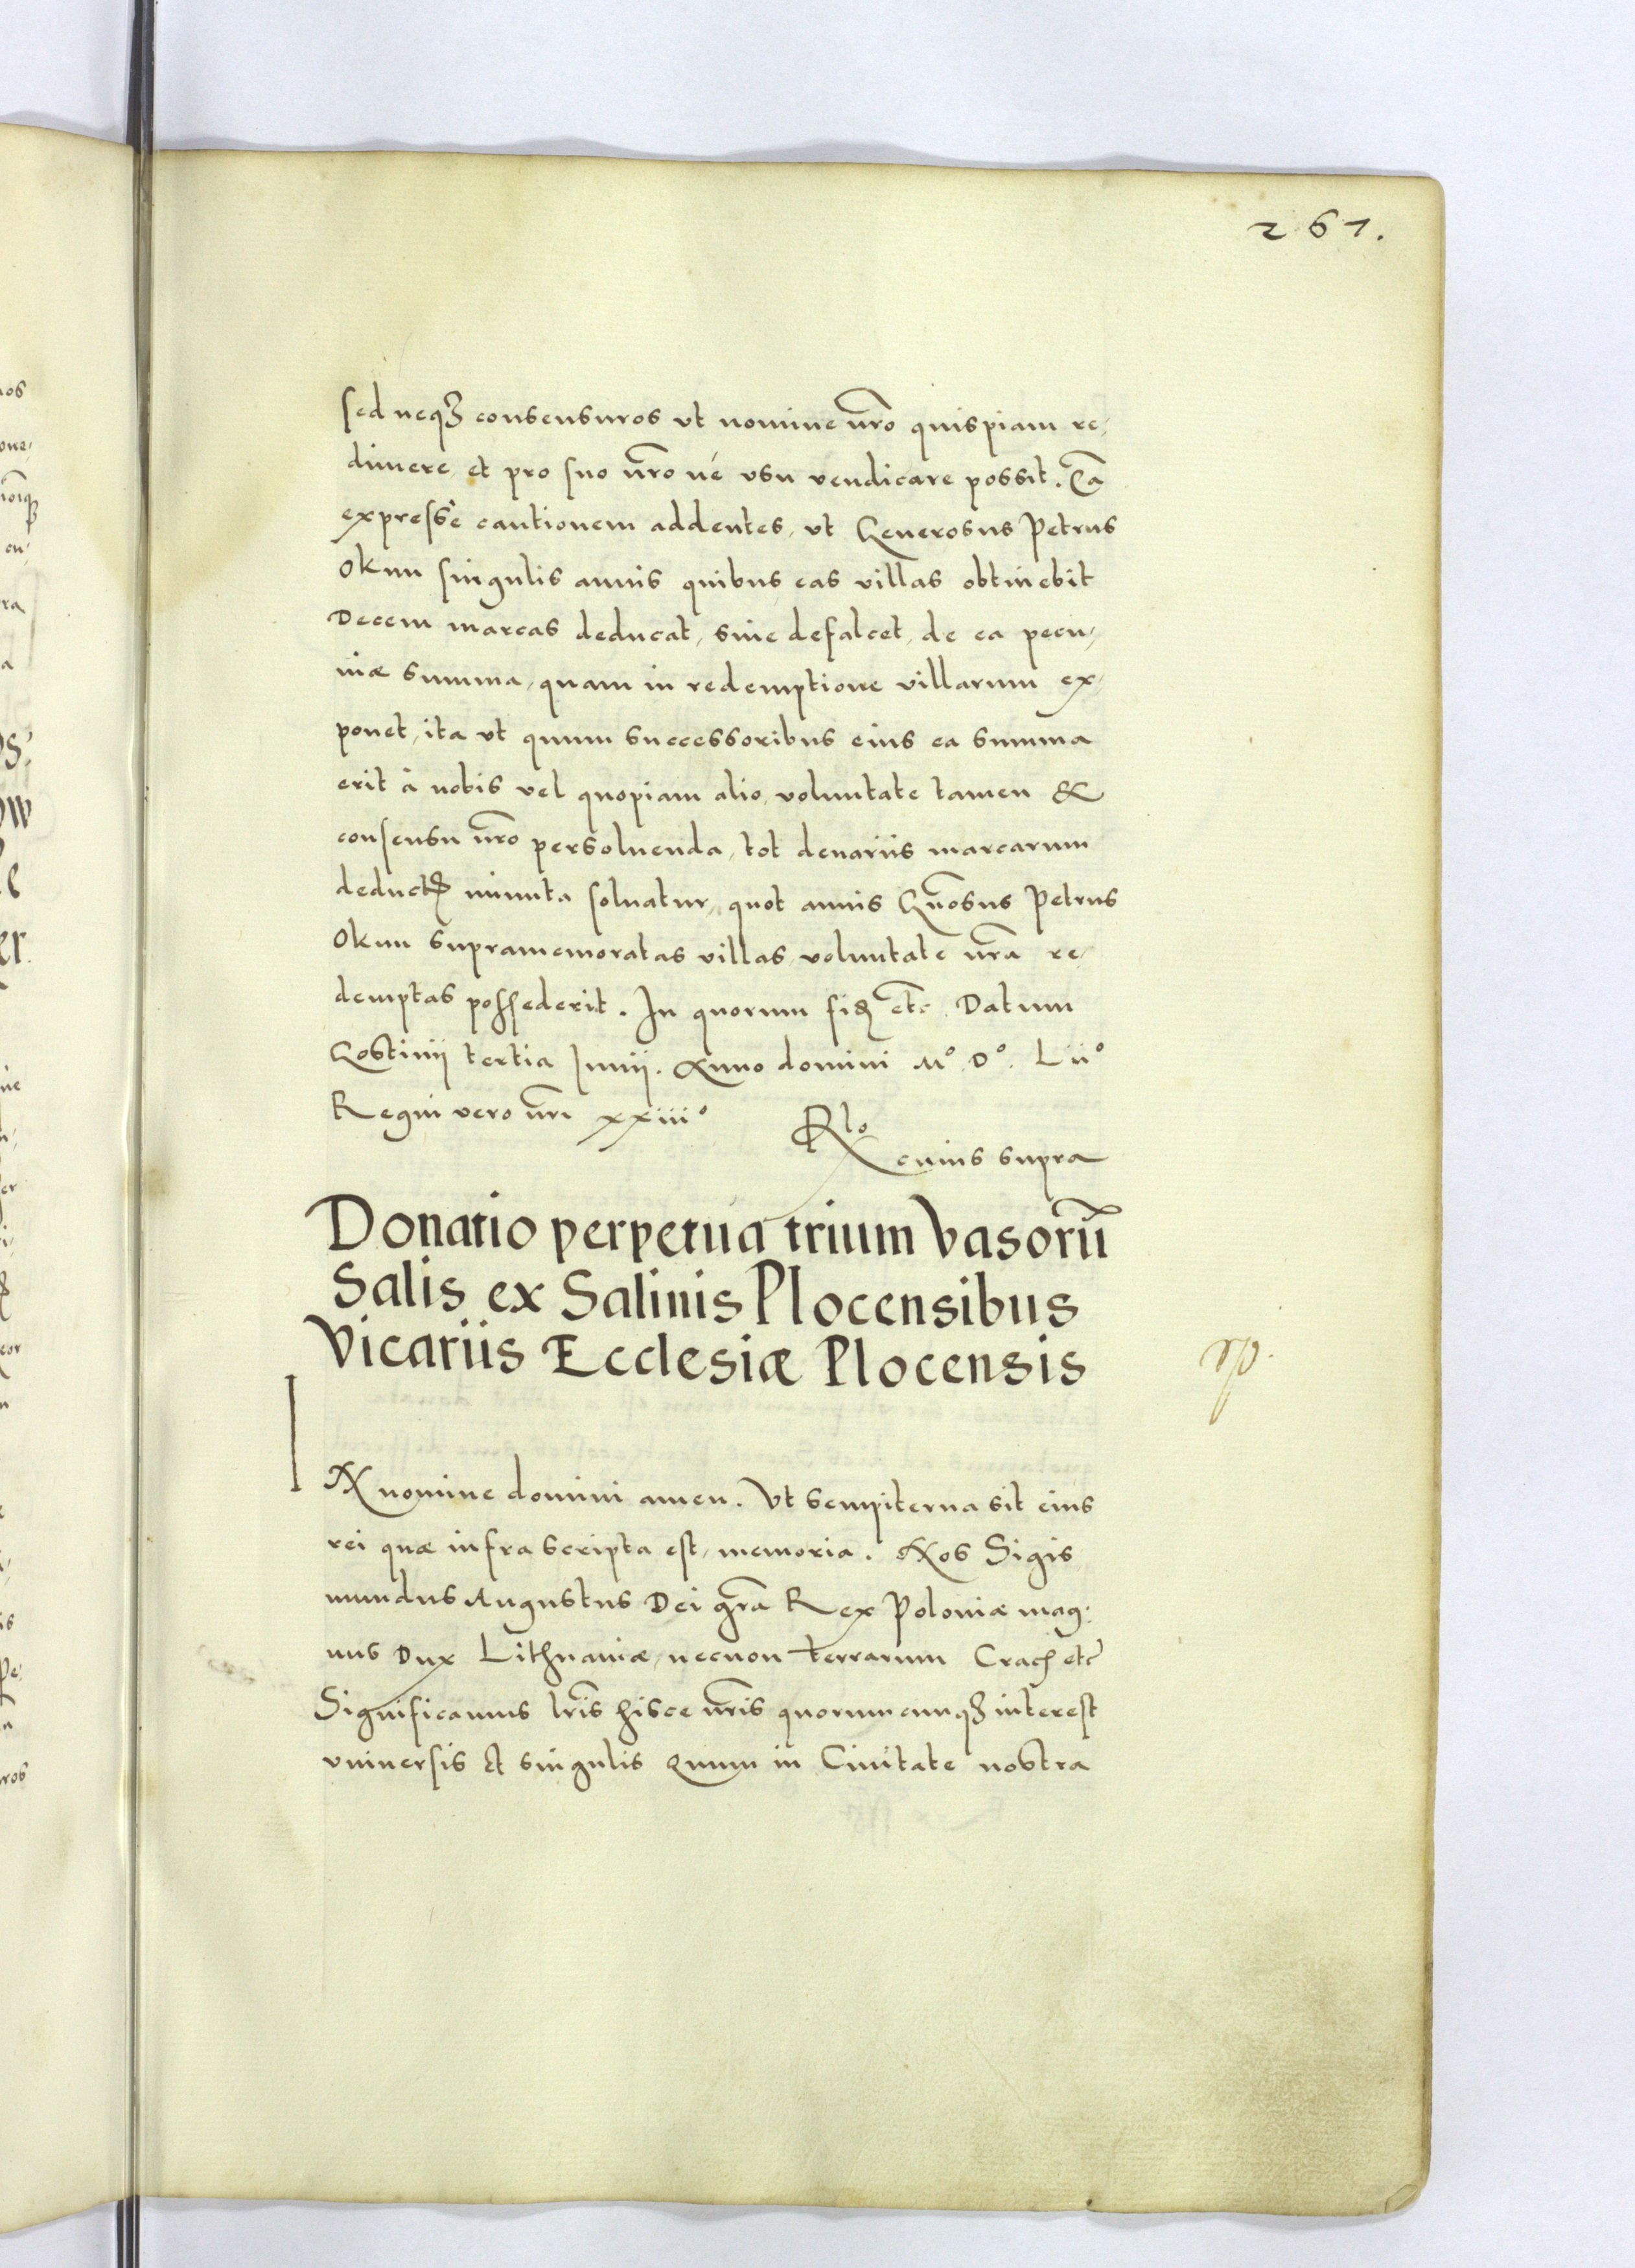 261.
sed neqȝ consensuros vt nomine nr̃o quispiam re,
dimere, et pro suo nr̃o ve vsu vendicare possit. Eã
expressè cautionem addentes, vt Generosus Petrus
Okun singulis annis quibus eas villas obtinebit
Decem marcas deducat, siue defalcet, de ea pecu,
niæ summa, quam in redemptione villarum ex,
ponet, ita vt quum successoribus eius ea summa
erit à nobis vel quopiam alio, voluntate tamen &
consensu nr̃o persoluenda, tot denariis marcarum
deductꝭ minuta soluatur, quot annis Gñosus Petrus
Okun supramemoratas villas, voluntate nr̃a re,
demptas possederit. In quorum fidꝫ etc̃. Datum
Gostinij tertia Junij. Anno domini Mº. Dº. Liiº
Regni vero nr̃i xxiiiº
Rlo
cuius supra
Donatio perpetua trium Vasorũ
Salis ex Salinis Plocensibus
Vicariis Ecclesiæ Plocensis
IN nomine domini amen. Vt sempiterna sit eius
rei quæ infra scripta est, memoria. Nos Sigis
mundus Augustus Dei gr̃a Rex Poloniæ mag:
nus Dux Lithuaniæ, necnon terrarum Cracȝ etc̃
Significamus lr̃is hisce nr̃is quorumcunqȝ interest
vniuersis et singulis Quum in Ciuitate nostra